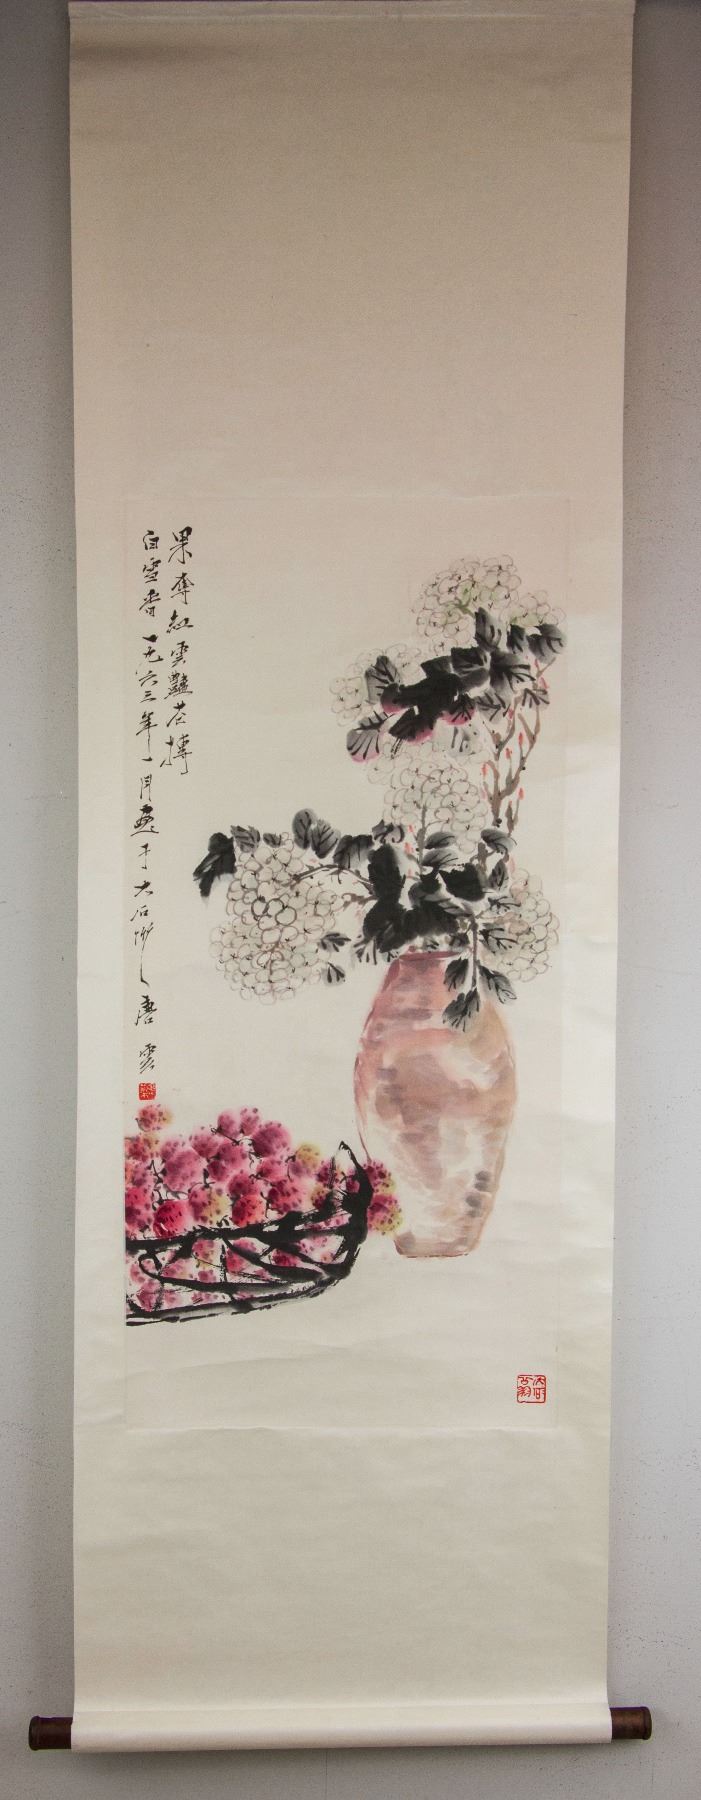 果奪紅雲艷花摶
白雪香一九六三年一月画于大石斋唐雲